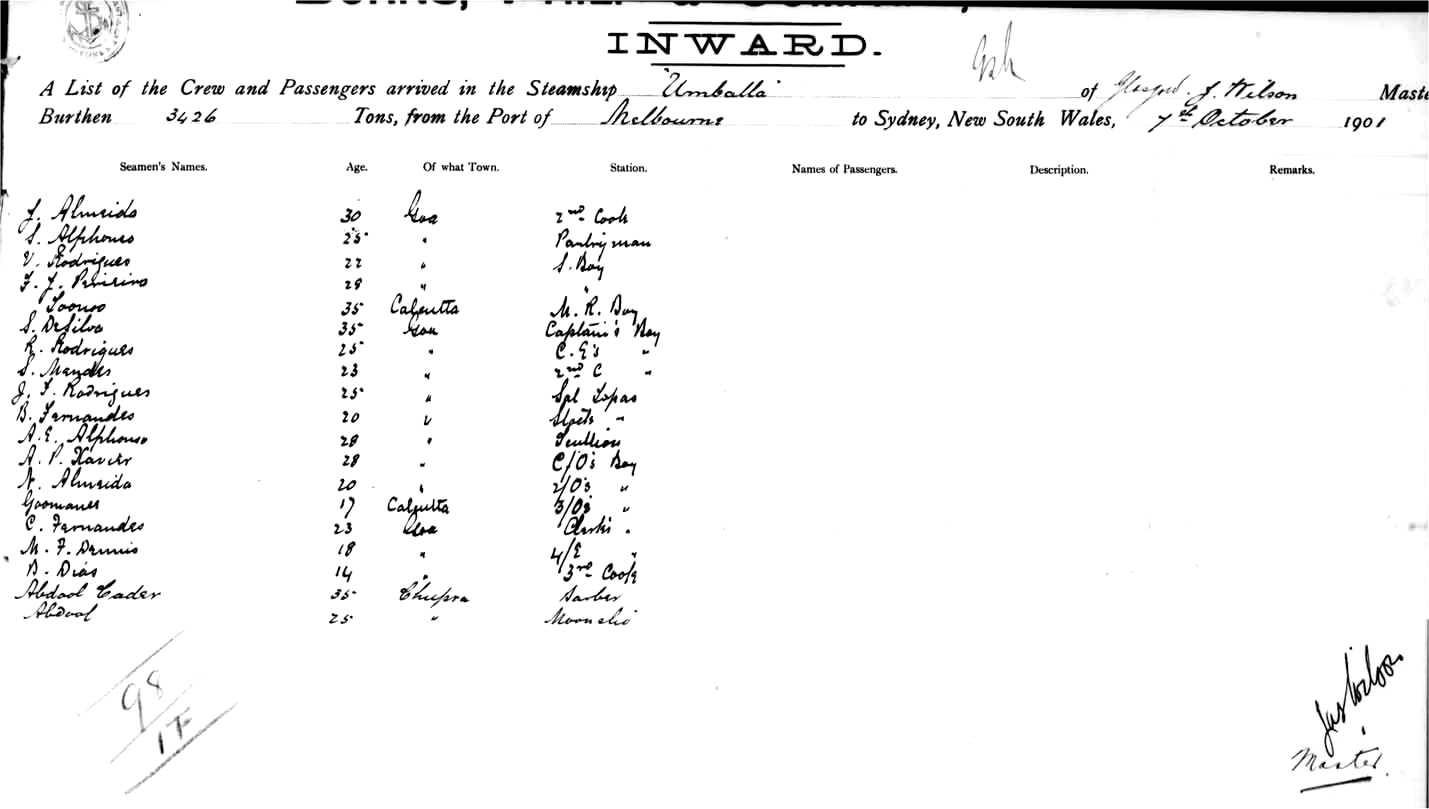 INWARD.
A List of the Crew and Passengers arrived in the Steamship "Umballa" of Glasgow. J. Wilson Maste
Burthen 3426 Tons, from the Port of Melbourne to Sydney, New South Wales, 7th October 1901
Seamen's Names. Age. Of what Town. Station. Names of Passengers. Description. Remarks.
J. Almeida 30 Goa 2nd Cook
S. Alphonso 25 " Pantryman
V. Rodrigues 22 " S. Boy
F. J. 28 " "
35 Calcutta M. R. Boy
S. DeSilva 35 Goa Captain's Boy
R. Rodrigues 25 " C. E's "
S. Mendes 23 " 2nd C "
J. F. Rodrigues 25 " Spl Topas
B. Fernandes 20 " "
A. E. Alphonso 28 " Scullion
A. P. Xavier 28 " C/O's Boy
N. Almeida 20 " 2/O's "
Goomanes 17 Calcutta 3/O's "
C. Fernandes 23 Goa Clerk's "
M. F. Dennis 18 " 4/E "
B. Dias 14 " 3rd Cook
Abdool Cader 35 Chupra Barber
Abdool 25 "
98
1F
Master.